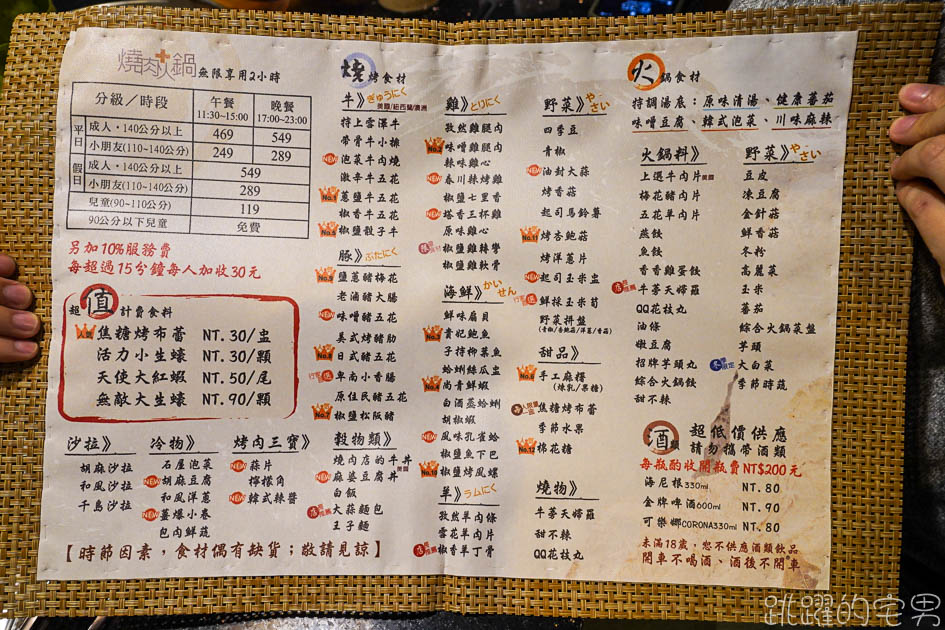 燒肉火鍋 無限享用2小時
分級／時段 午餐 11:30~15:00 晚餐 17:00~23:00
平日 成人・140公分以上 469 549
小朋友(110~140公分) 249 289
假日 成人・140公分以上 549
小朋友(110~140公分) 289
兒童(90~110公分) 119
90公分以下兒童 免費
另加10%服務費
每超過15分鐘每人加收30元
超值 計費食料
人氣 焦糖烤布蕾 NT.30/盅
活力小生蠔 NT.30/顆
天使大紅蝦 NT.50/尾
無敵大生蠔 NT.90/顆
沙拉》
胡麻沙拉
和風沙拉
千島沙拉
冷物》
石屋泡菜
NEW 胡麻豆腐
和風洋蔥
NEW 薑爆小卷
包內鮮蔬
烤肉三寶》
NEW 蒜片
檸檬角
NEW 韓式辣醬
【時節因素，食材偶有缺貨；敬請見諒】
燒烤食材
牛》ぎゅうにく
美國/紐西蘭/澳洲
特上雪澤牛
帶骨牛小排
NEW 泡菜牛肉燒
激辛牛五花
No.1 蔥鹽牛五花
椒香牛五花
No.5 椒鹽骰子牛
豚》ぶたにく
No.9 鹽蔥豬梅花
老滷豬大腸
NEW 味噌豬五花
美式烤豬肋
No.8 日式豬五花
卑南小香腸
原住民豬五花
No.7 椒鹽松阪豬
穀物類》
燒肉店的牛丼 美國
NEW 麻婆豆腐丼
白飯
大蒜麵包
王子麵
雞》とりにく
孜然雞腿肉
No.2 味噌雞腿肉
辣味雞心
NEW 春川辣烤雞
椒鹽七里香
NEW 塔香三杯雞
原味雞心
椒鹽雞辣彎
椒鹽雞軟骨
海鮮》かいせん
鮮味扇貝
No.3 貴妃鮑魚
子持柳葉魚
蛤蜊絲瓜盅
No.6 尚青鮮蝦
白酒蒸蛤蜊
胡椒蝦
NEW 風味孔雀蛤
椒鹽魚下巴
No.10 椒鹽烤風螺
羊》ラムにく
孜然羊肉條
雪花羊肉片
椒香羊丁骨
野菜》やさい
四季豆
青椒
NEW 油封大蒜
烤香菇
起司馬鈴薯
No.11 烤杏鮑菇
烤洋蔥片
NEW 起司玉米盅
鮮採玉米筍
野菜拼盤
(青椒/杏鮑菇/洋蔥/香菇)
甜品》
No.4 手工麻糬
(煉乳/果糖)
焦糖烤布蕾
季節水果
No.12 棉花糖
燒物》
牛蒡天婦羅
甜不辣
QQ花枝丸
火鍋食材
特調湯底：原味清湯、健康蕃茄
味噌豆腐、韓式泡菜、川味麻辣
火鍋料》
上選牛肉片 美國
梅花豬肉片
五花羊肉片
燕餃
魚餃
香香雞蛋餃
牛蒡天婦羅
QQ花枝丸
油條
嫩豆腐
招牌芋頭丸
綜合火鍋餃
甜不辣
野菜》やさい
豆皮
凍豆腐
金針菇
鮮香菇
冬粉
高麗菜
玉米
蕃茄
綜合火鍋菜盤
芋頭
冬限定 大白菜
季節時蔬
酒類 超低價供應
請勿攜帶酒類
每瓶酌收開瓶費NT$200元
海尼根330ml NT.80
金牌啤酒600ml NT.90
可樂娜CORONA330ml NT.80
未滿18歲，恕不供應酒類飲品
開車不喝酒、酒後不開車
跳躍的宅男